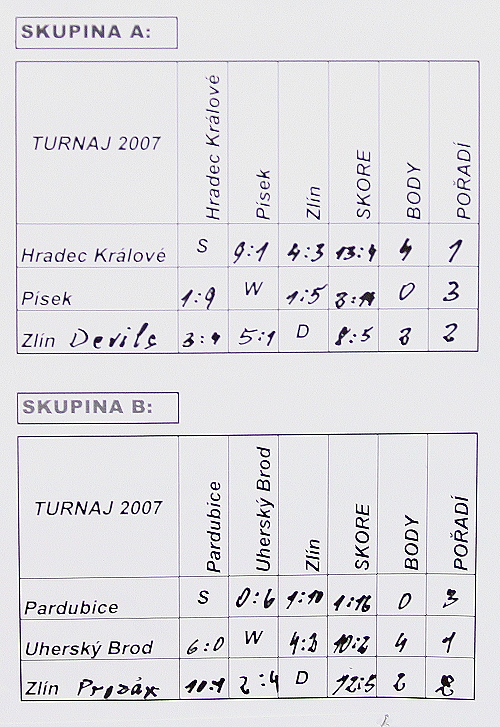 SKUPINA A:
TURNAJ 2007 Hradec Králové Písek Zlín SKORE BODY POŘADÍ
Hradec Králové S 9:1 4:3 13:4 4 1
Písek 1:9 W 1:5 0 3
Zlín Devils 3:4 5:1 D 8:5 2
SKUPINA B:
TURNAJ 2007 Pardubice Uherský Brod Zlín SKORE BODY POŘADÍ
Pardubice S 0:6 1:10 1:16 0 3
Uherský Brod 6:0 W 4:2 10:2 4 1
Zlín Prozáx 10:1 2:4 D 12:5 2 2